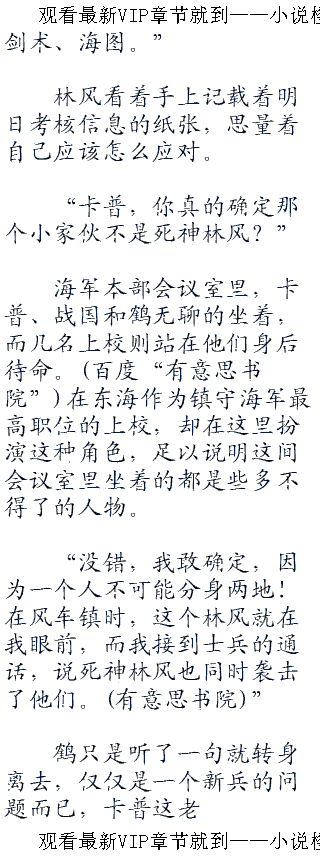 观看最新VIP章节就到——小说检
剑术、海图。”
林风看着手上记载着明
日考核信息的纸张，思量着
自己应该怎么应对。
“卡普，你真的确定那
个小家伙不是死神林风？”
海军本部会议室里，卡
普、战国和鹤无聊的坐着，
而几名上校则站在他们身后
待命。(百度“有意思书
院”)在东海作为镇守海军最
高职位的上校，却在这里扮
演这种角色，足以说明这间
会议室里坐着的都是些多不
得了的人物。
“没错，我敢确定，因
为一个人不可能分身两地！
在风车镇时，这个林风就在
我眼前，而我接到士兵的通
话，说死神林风也同时袭击
了他们。(有意思书院)”
鹤只是听了一句就转身
离去，仅仅是一个新兵的问
题而已，卡普这老
观看最新VIP章节就到——小说检